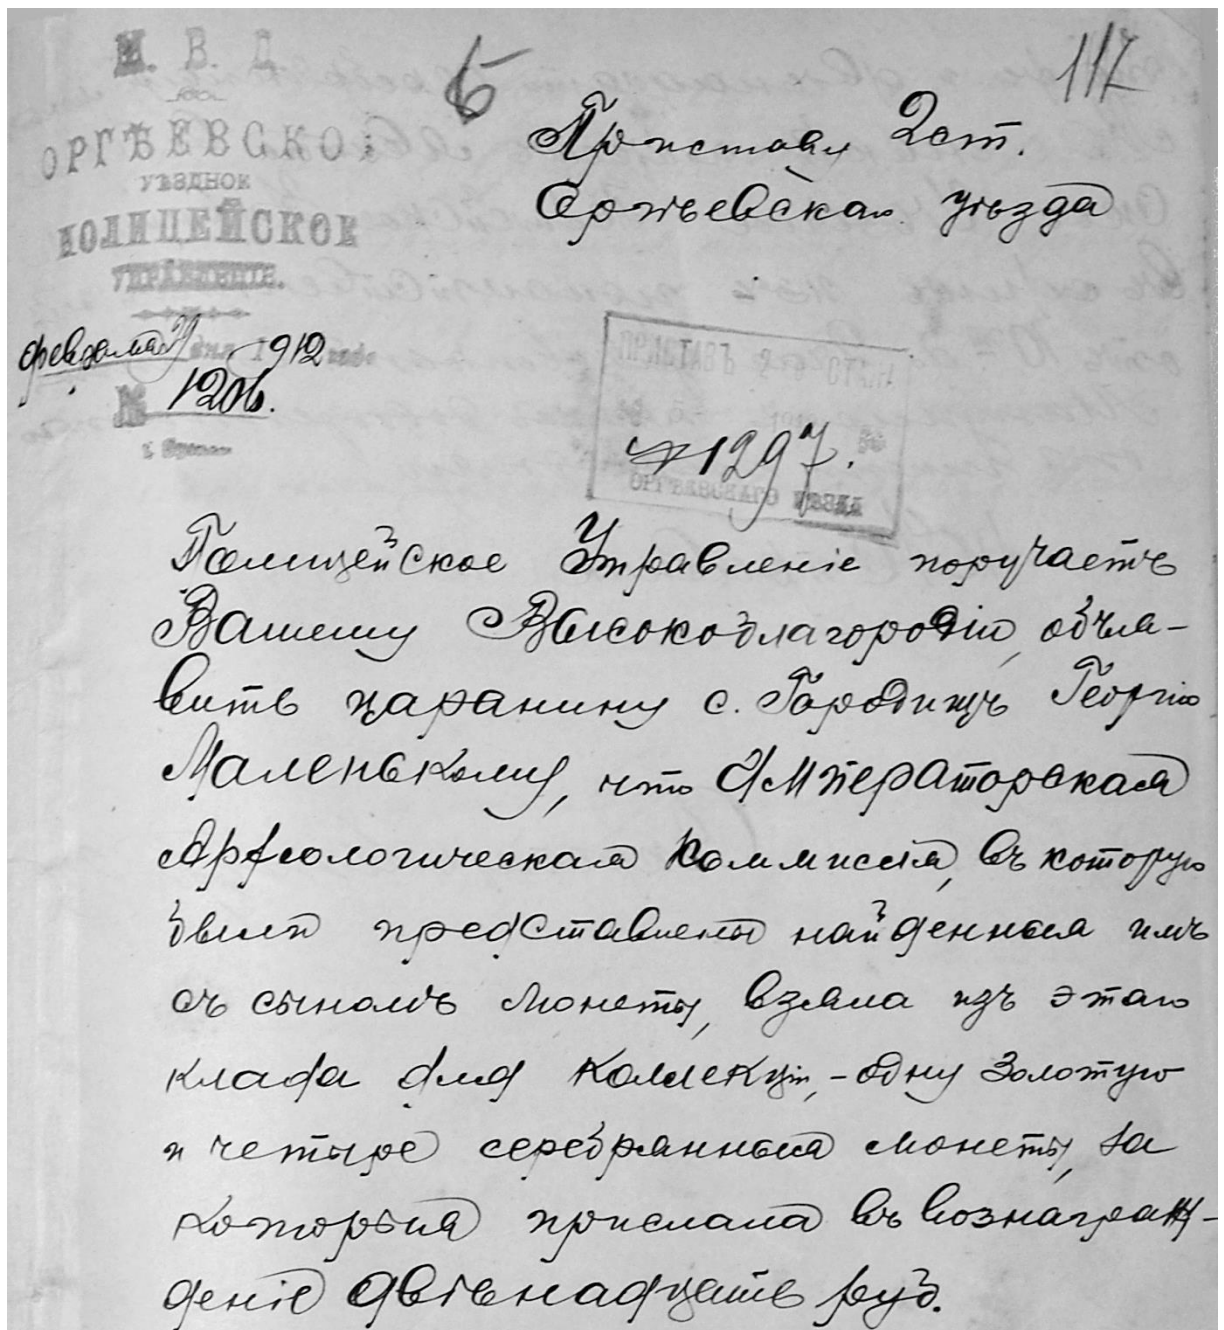 М. В. Д.
ОРГѢЕВСКОЕ
УѢЗДНОЕ
ПОЛИЦЕЙСКОЕ
УПРАВЛЕНІЕ.
февраля дня 1912 года
№ 1206.
Б
117
Приставу 2 ст.
Оргѣевскаго уѣзда
№ 1297.
ОРГѢЕВСКАГО УѢЗДА
Полицейское Управленіе поручаетъ
Вашему Высокоблагородію, объя-
вить царанину с. Городищъ Георгію
Маленькому, что Императорская
Археологическая Коммисія, въ которую
были представлены найденныя имъ
съ сыномъ монеты, взяла изъ этаго
клада для коллекціи, - одну золотую
и четыре серебрянныя монеты, за
которыя прислала въ вознаграж-
деніе двѣнадцать руб.